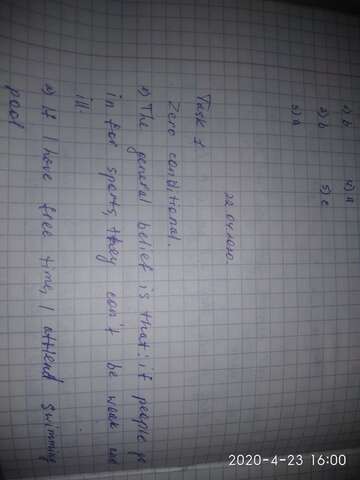 1) b 4) a
2) b 5) c
3) a
22.04.2020.
Task 1
Zero conditional.
1) The general belief is that: if people go
in for sports, they can't be weak
ill.
2) If I have free time, I attend swimming
pool
2020-4-23 16:00